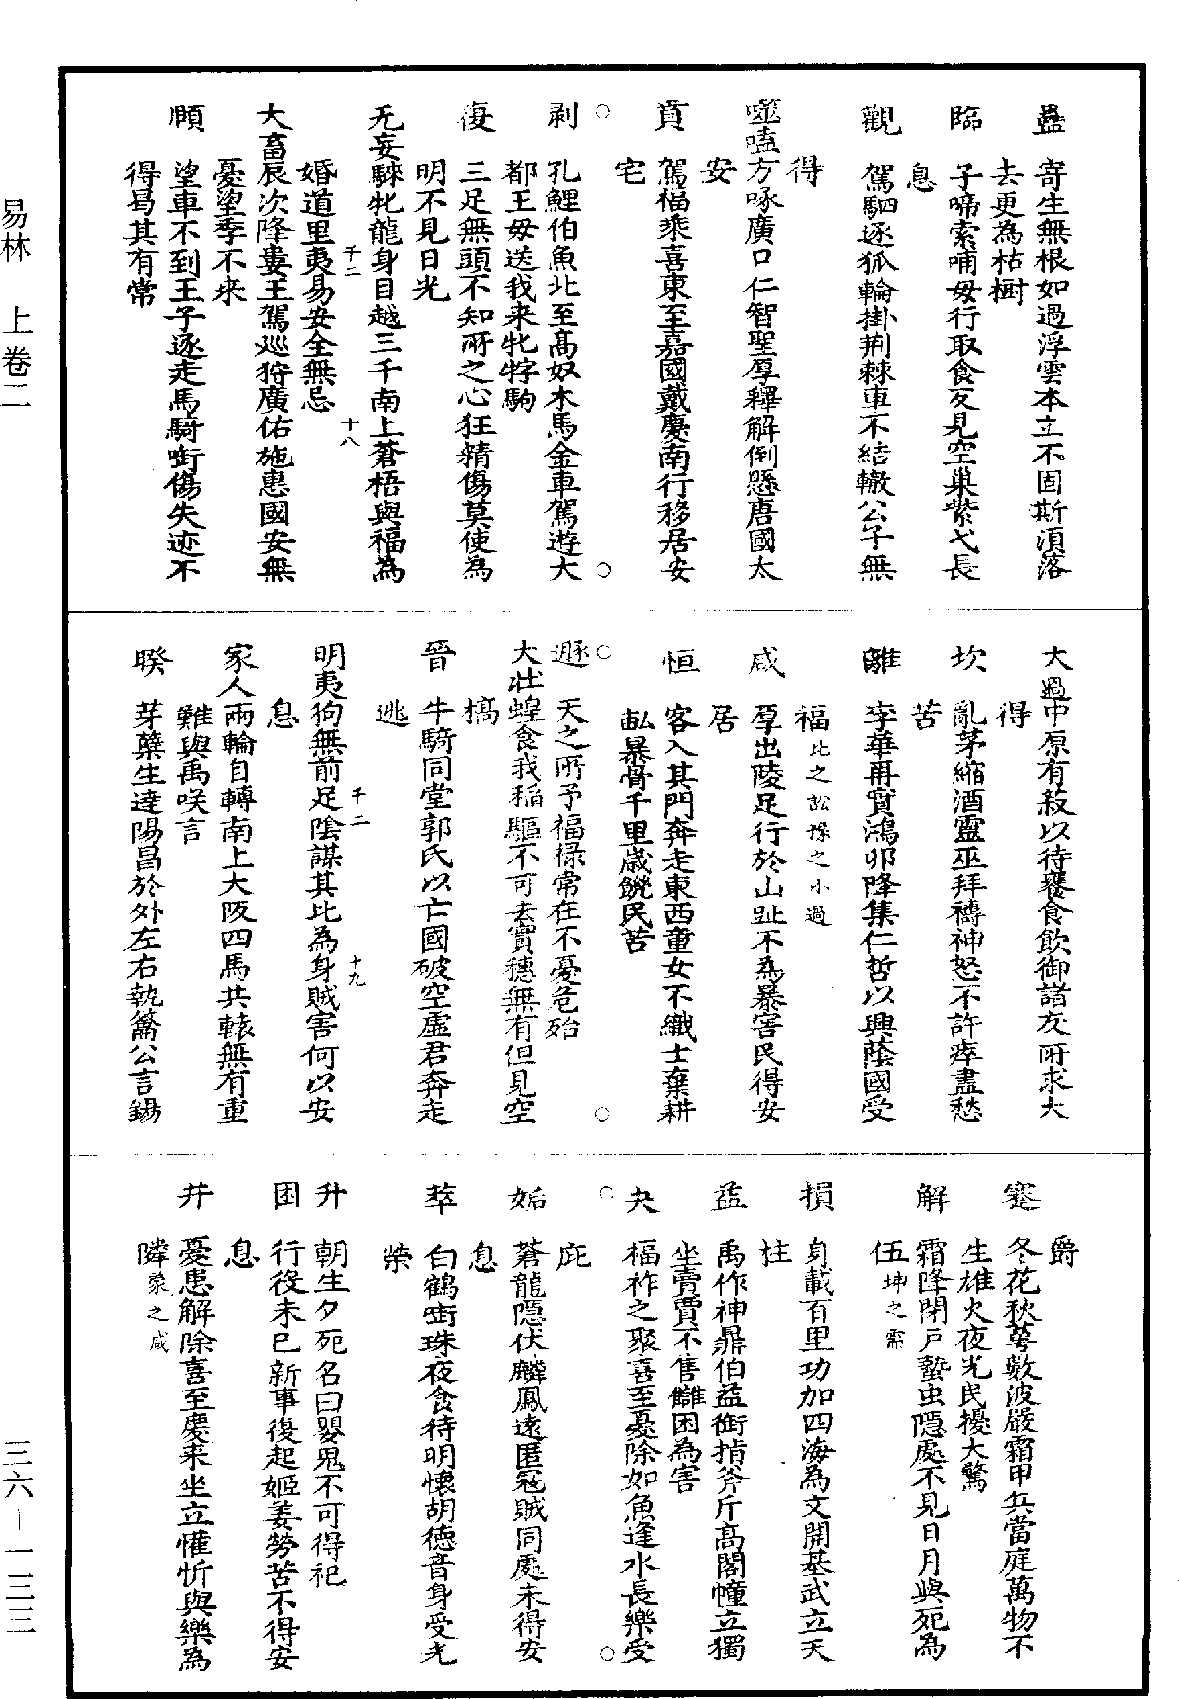 蠱　寄生無根如過浮雲本立不固斯須落
去更為枯樹
臨　子啼索哺母行取食反見空巢紫弋長
息
觀　駕駟逐狐輪掛荆棘車不結轍公子無
得
噬嗑方啄廣口仁智聖厚釋解倒懸唐國太
安
賁　駕福乘喜東至嘉國戴慶南行移居安
宅
○　○
剥　孔鯉伯魚北至高奴木馬金車駕遊大
都王母送我來牝牸駒
復　三足無頭不知所之心狂精傷莫使為
明不見日光
无妄騋牝龍身目越三千南上蒼梧與福為
婚道里夷易安全無忌
千二　十八
大畜辰次降婁王駕巡狩廣佑施惠國安無
憂望季不來
頤　望車不到王子逐走馬騎啣傷失迹不
得曷其有常
大過中原有菽以待饔食飲御諸友所求大
得
坎　亂茅縮酒靈巫拜禱神怒不許瘁盡愁
苦
離　李華再實鴻卵降集仁哲以興蔭國受
福比之訟豫之小過
咸　厚出陵足行於山趾不為暴害民得安
居
恒　客入其門奔走東西童女不織士棄耕
畝暴骨千里歲饑民苦
○　○
遯　天之所予福禄常在不憂危殆
大壯蝗食我稻驅不可去實穗無有但見空
槁
晉　牛騎同堂郭氏以亡國破空虛君奔走
逃
千二　十九
明夷狗無前足陰謀其比為身賊害何以安
息
家人兩輪自轉南上大阪四馬共轅無有重
難與禹咲言
睽　芽蘖生達陽昌於外左右執籥公言錫
爵
蹇　冬花秋萼數波嚴霜甲兵當庭萬物不
生雄火夜光民擾大驚
解　霜降閉戸蟄虫隱處不見日月與死為
伍坤之需
損　身載百里功加四海為文開基武立天
柱
益　禹作神鼎伯益銜指斧斤高閣幢立獨
坐賣賈不售讎困為害
○　○
夬　福祚之聚喜至憂除如魚逢水長樂受
庇
姤　蒼龍隱伏麟鳳遠匿冦賊同處未得安
息
萃　白鶴㗸珠夜食待明懷胡德音身受光
榮
升　朝生夕死名曰嬰鬼不可得祀
困　行役未已新事復起姬姜勞苦不得安
息
井　憂患解除喜至慶來坐立懽忻與樂為
隣蒙之咸
易林　上卷二　三六－一三三